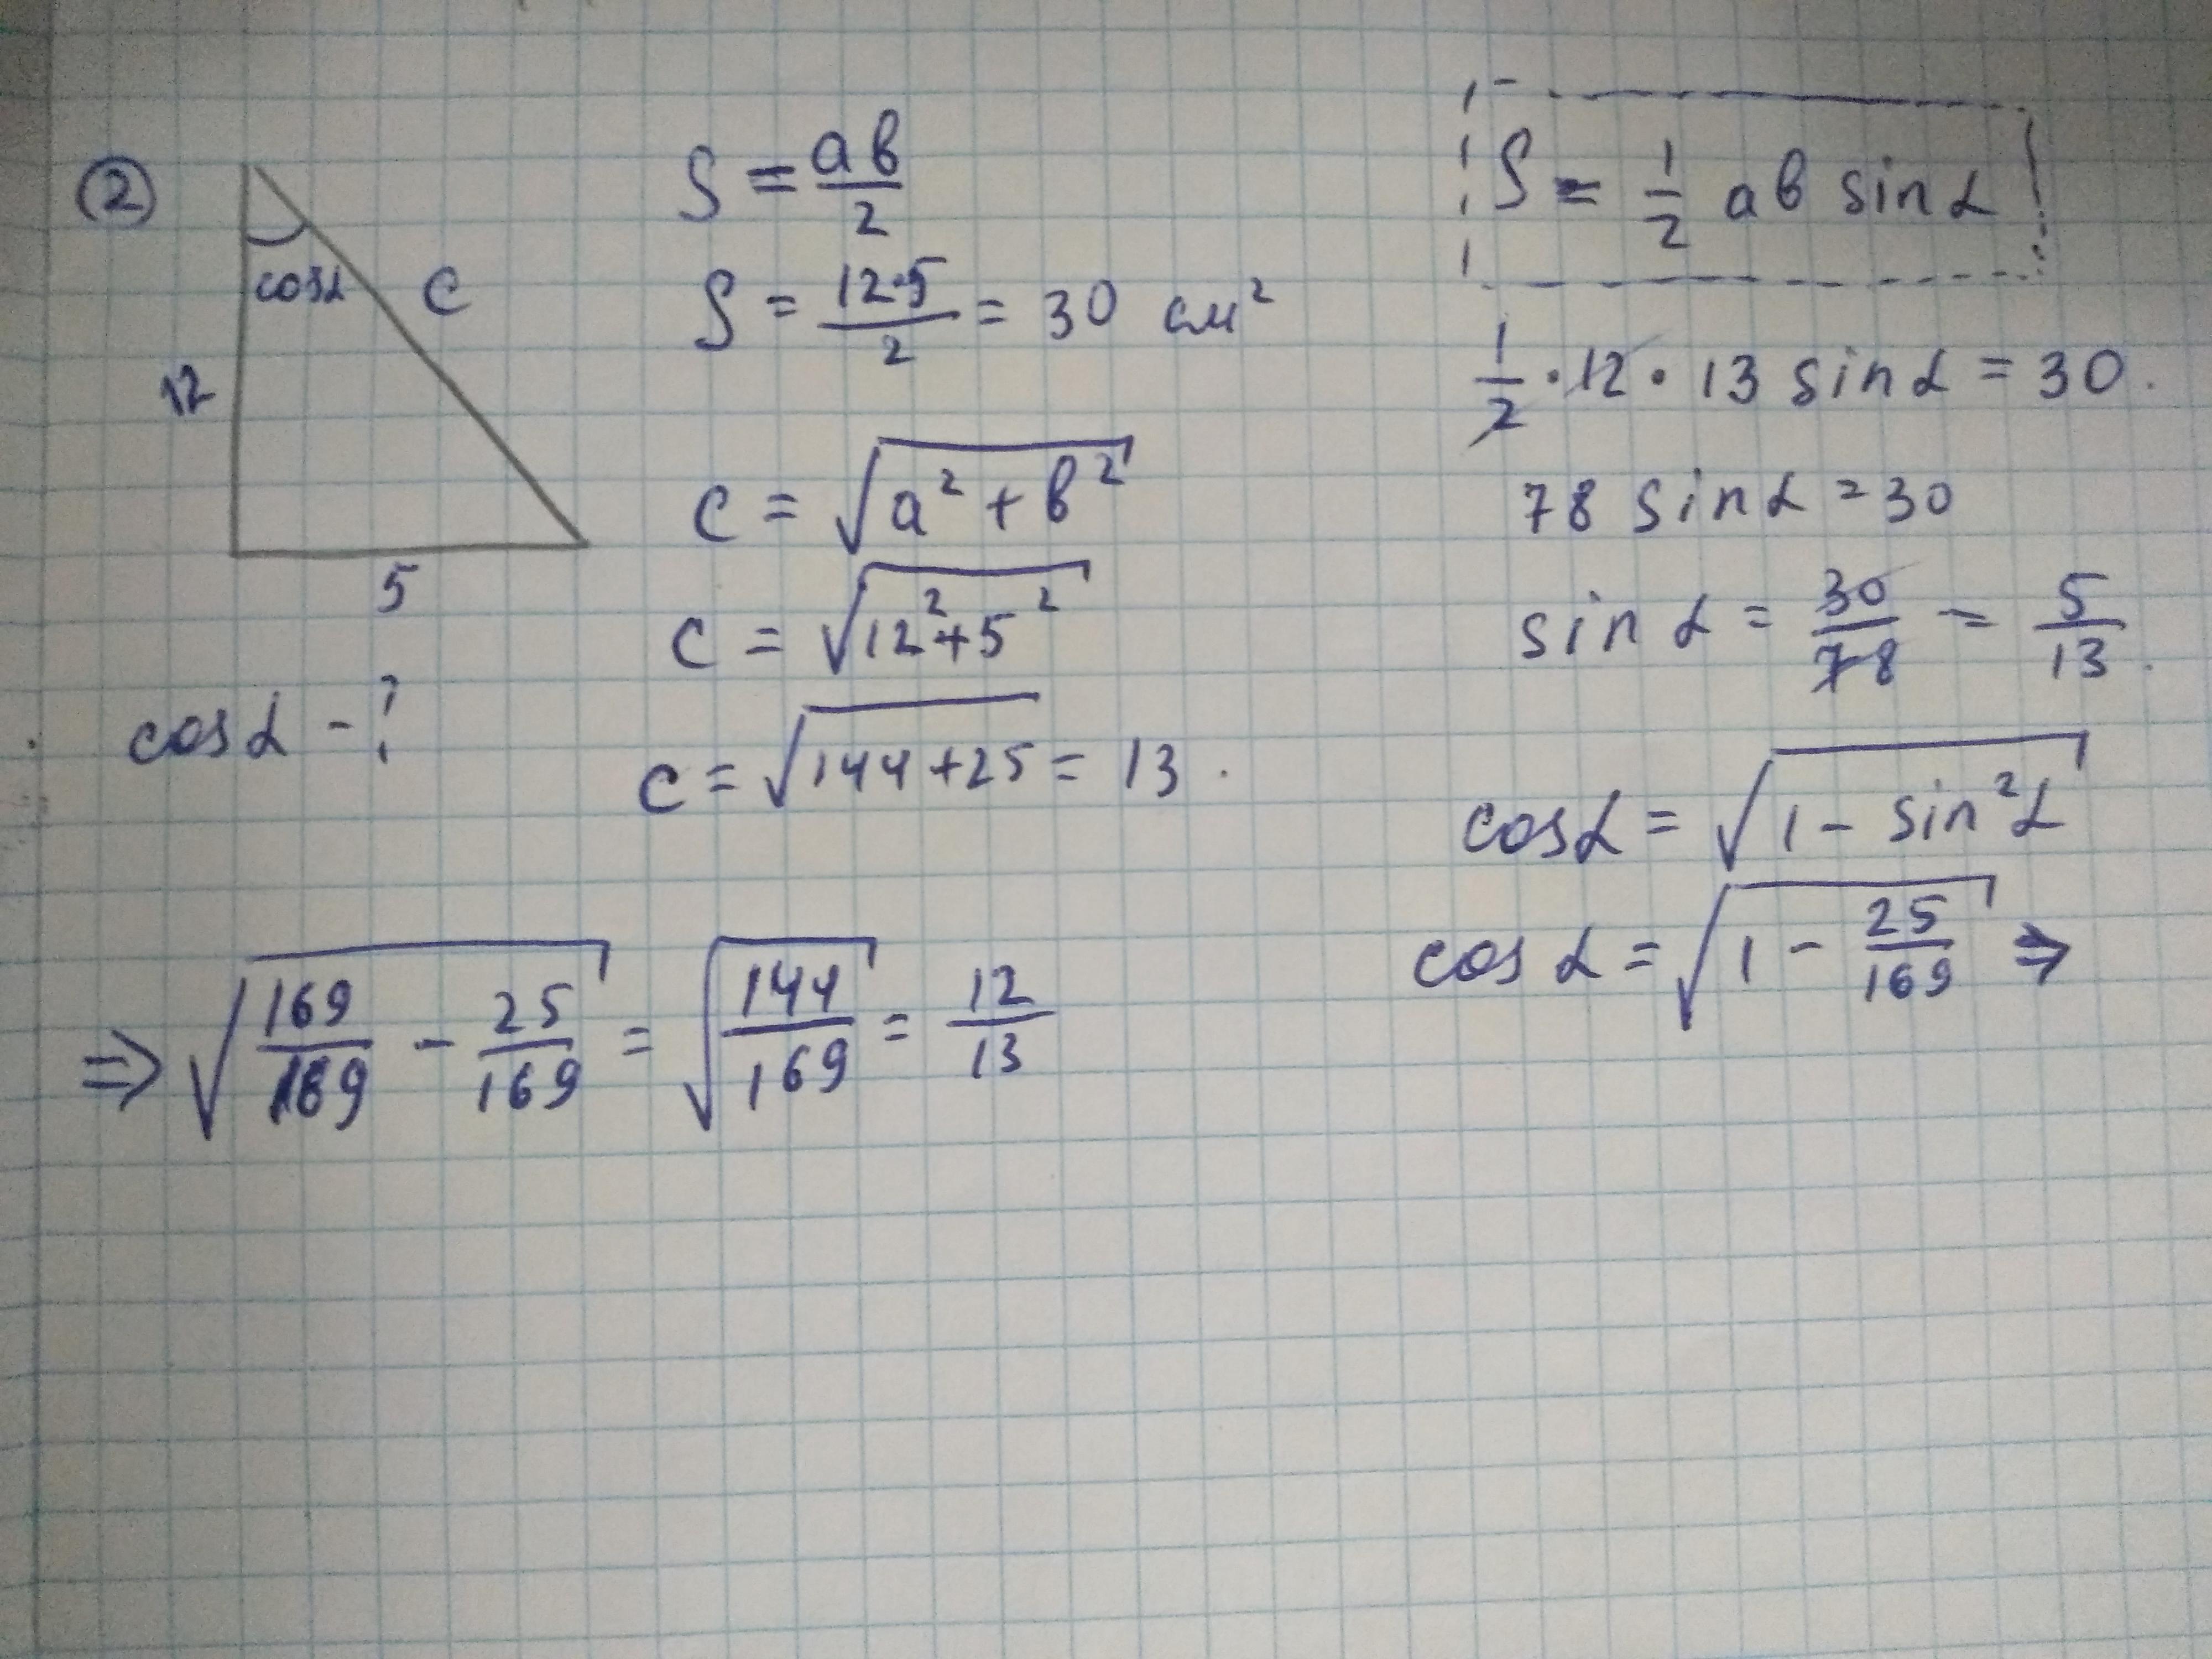 ②
cosα
c
12
5
cosα - ?
S = ав/2
S = 12·5/2 = 30 см²
c = √(а² + в²)
c = √(12² + 5²)
c = √(144 + 25) = 13.
S = 1/2 ав sinα
1/2 · 12 · 13 sinα = 30.
78 sinα = 30
sinα = 30/78 = 5/13.
cosα = √(1 - sin²α)
cosα = √(1 - 25/169) ⇒
⇒ √(169/169 - 25/169) = √(144/169) = 12/13